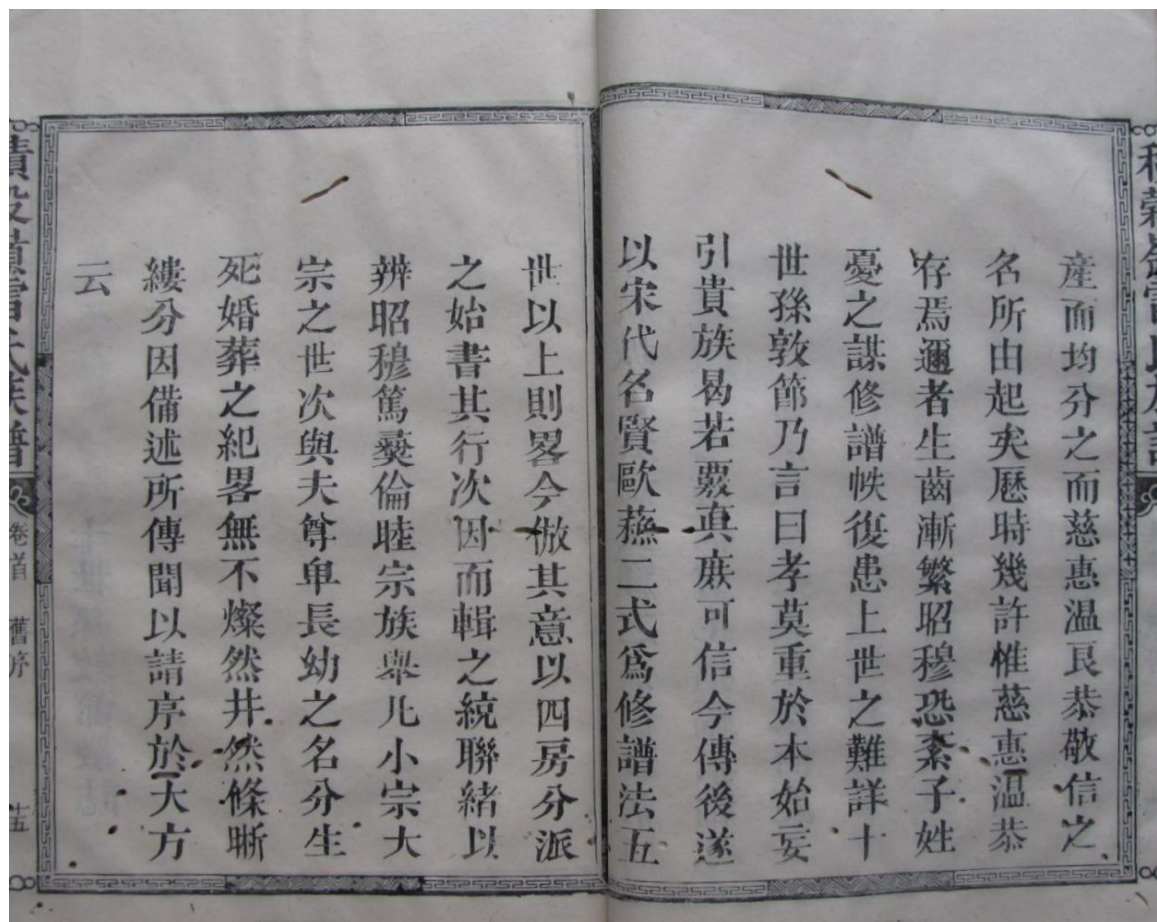 產而均分之而慈惠温良恭敬信之
名所由起矣厯時幾許惟慈惠温恭
存焉邇者生齒漸繁昭穆恐紊子姓
憂之謀修譜帙復患上世之難詳十
世孫敦節乃言曰孝莫重於本始妄
引貴族曷若覈真庶可信今傳後遂
以宋代名賢歐蘓二式爲修譜法五
世以上則畧今倣其意以四房分派
之始書其行次因而輯之統聯緒以
辨昭穆篤彜倫睦宗族舉凡小宗大
宗之世次與夫尊卑長幼之名分生
死婚葬之紀畧無不燦然井然條晰
縷分因備述所傳聞以請序於大方
云
氏族譜
卷首
舊序
十五